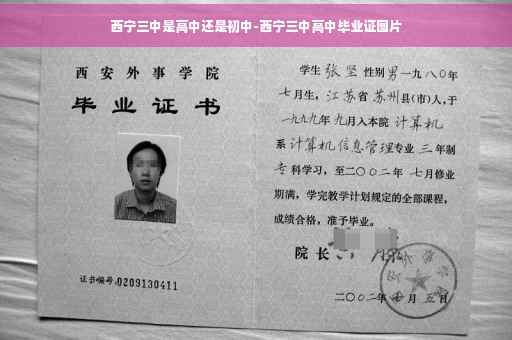 西宁三中是高中还是初中-西宁三中高中毕业证图片
西安外事学院
毕业证书
证书编号:0209130411
学生 张坚 性别 男 一九八〇年
七月生，江苏省 苏州 县(市)人,于
一九九九年 九月入本院 计算机
系 计算机信息管理 专业 三 年制
专 科学习，至二〇〇二年 七月修业
期满，学完教学计划规定的全部课程，
成绩合格，准予毕业。
院长
二〇〇二年 月 五日